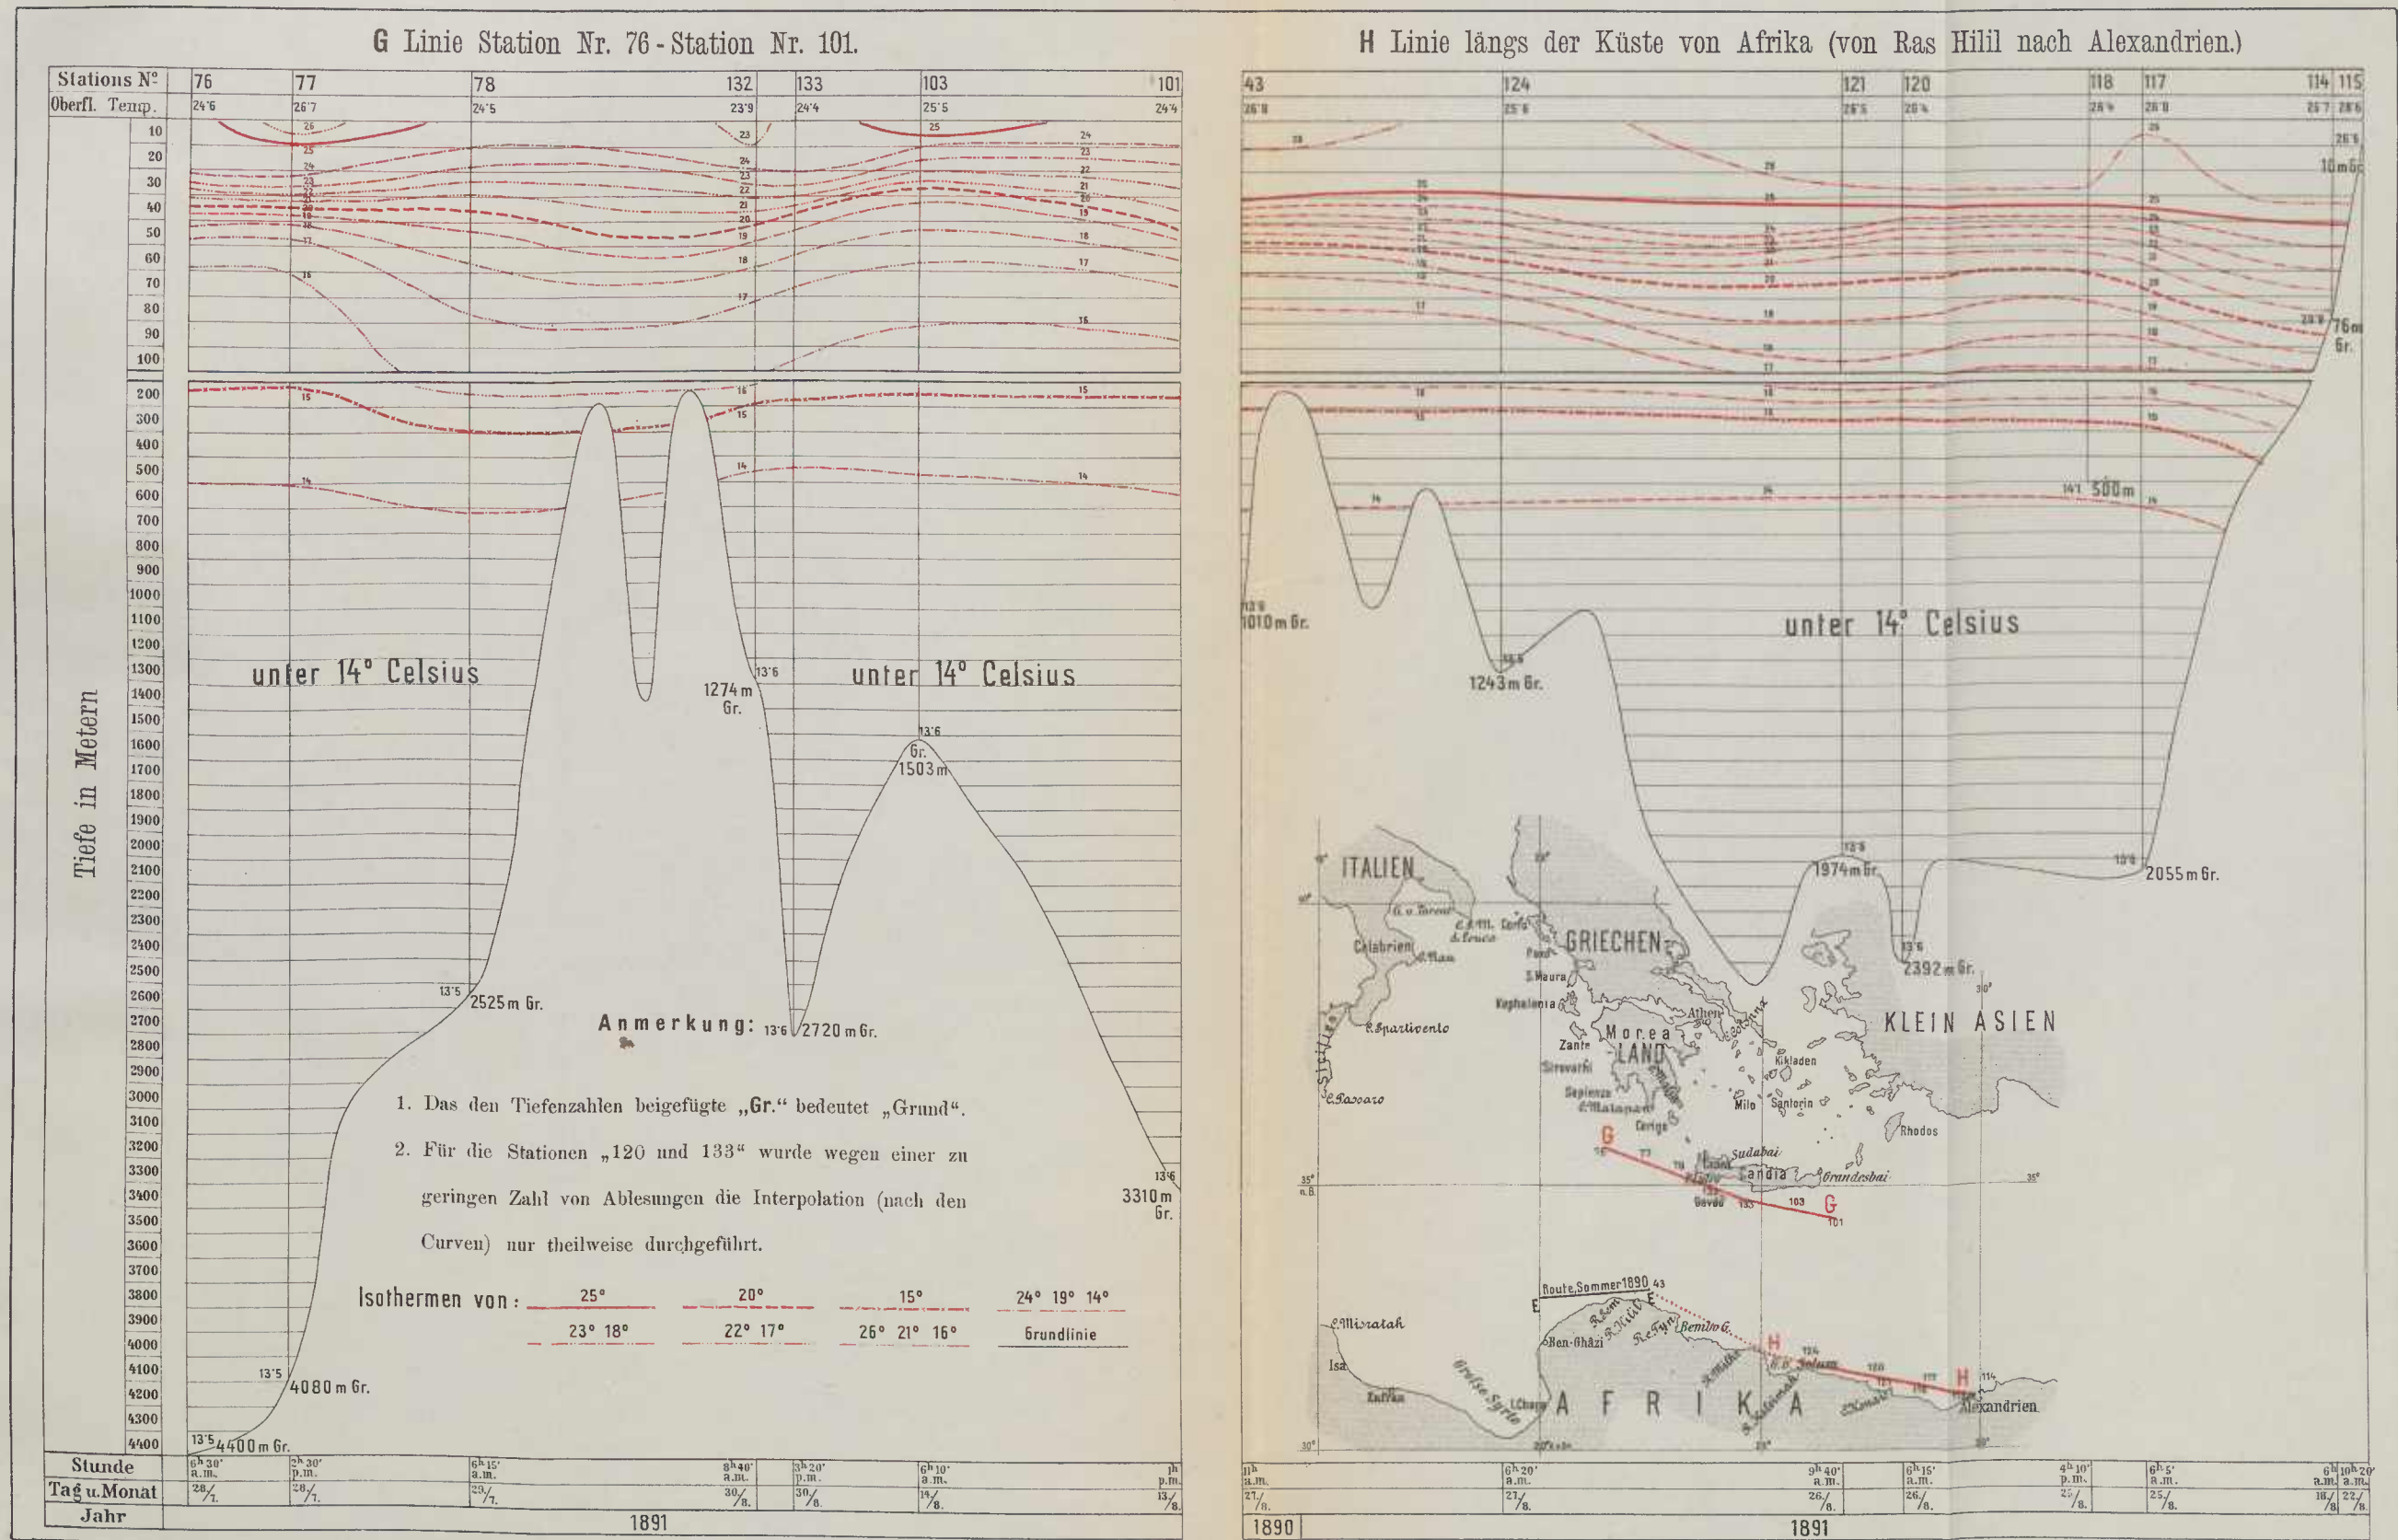 G Linie Station Nr. 76 - Station Nr. 101.
Stations Nº 76 77 78 132 133 103 101
Oberfl. Temp. 24'6 26'7 24'5 23'9 24'4 25'5 24'4
10
20
30
40
50
60
70
80
90
100
200
300
400
500
600
700
800
900
1000
1100
1200
1300
1400
1500
1600
1700
1800
1900
2000
2100
2200
2300
2400
2500
2600
2700
2800
2900
3000
3100
3200
3300
3400
3500
3600
3700
3800
3900
4000
4100
4200
4300
4400
Tiefe in Metern
26
25
24
23
22
21
20
19
18
17
16
15
14
unter 14° Celsius
unter 14° Celsius
13'6
1274 m
Gr.
13'6
Gr.
1503 m
13'5
2525 m Gr.
13'6 2720 m Gr.
13'6
3310 m
Gr.
13'5
4080 m Gr.
13'5
4400 m Gr.
Anmerkung:
1. Das den Tiefenzahlen beigefügte „Gr.“ bedeutet „Grund“.
2. Für die Stationen „120 und 133“ wurde wegen einer zu
geringen Zahl von Ablesungen die Interpolation (nach den
Curven) nur theilweise durchgeführt.
Isothermen von: 25° 20° 15° 24° 19° 14°
23° 18° 22° 17° 26° 21° 16° Grundlinie
Stunde 6h 30' a.m. 2h 30' p.m. 6h 15' a.m. 8h 40' a.m. 3h 20' p.m. 6h 10' a.m. 1h p.m.
Tag u. Monat 28/7. 28/7. 29/7. 30/8. 30/8. 14/8. 13/8.
Jahr 1891
H Linie längs der Küste von Afrika (von Ras Hilil nach Alexandrien.)
43 124 121 120 118 117 114 115
26'8 25'6 26'5 26'4 26'4 26'8 26'7 26'6
26'6
10 m Gr.
76 m
Gr.
14'1 500 m
13'6
1010 m Gr.
unter 14° Celsius
1243 m Gr.
13'6
1974 m Gr.
13'6
2055 m Gr.
13'6
2392 m Gr.
ITALIEN
Calabrien
Sicilien
C. Spartivento
C. Passaro
Corfu
S. Maura
Kephalonia
Zante
GRIECHEN-
LAND
Morea
Athen
Sapienza
C. Malapan
Cerigo
Kikladen
Milo
Santorin
KLEIN ASIEN
Rhodos
Sudabai
Candia
Grandesbai
G 76 77 78 133 103 G 101
35°
n. B.
35°
30°
Route, Sommer 1890 43
E E
C. Misratah
Isa
Ben-Gházi
R. Sem
R. Hilil
R. et Tyn
Grosse Syrte
AFRIKA
H 124 120 117 H 114
Alexandrien
30°
11h a.m. 6h 20' a.m. 9h 40' a.m. 6h 15' a.m. 4h 10' p.m. 6h 5' a.m. 6h a.m. 10h 20' a.m.
27./8. 27/8. 26./8. 26./8. 25/8. 25/8. 18/8 22/8.
1890 1891